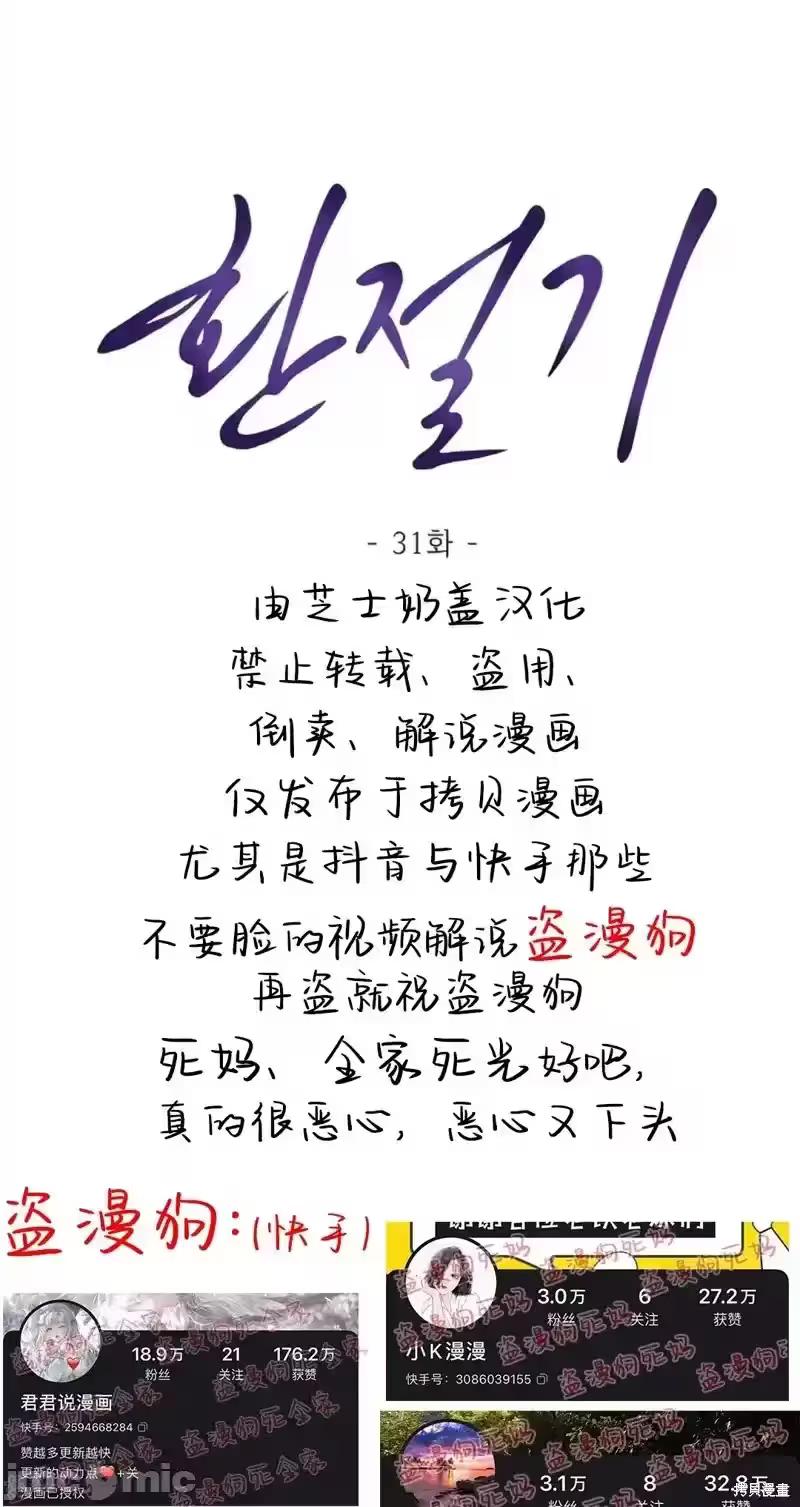 환절기
- 31화 -
由芝士奶盖汉化
禁止转载、盗用、
倒卖、解说漫画
仅发布于拷贝漫画
尤其是抖音与快手那些
不要脸的视频解说盗漫狗
再盗就祝盗漫狗
死妈、全家死光好吧,
真的很恶心,恶心又下头
盗漫狗:(快手)
3.0万 6 27.2万
粉丝 关注 获赞
小K漫漫
快手号:3086039155
盗漫狗死妈
18.9万 21 176.2万
粉丝 关注 获赞
君君说漫画
快手号:2594668284
赞越多更新越快
更新的动力点❤️+关
漫画已授权
盗漫狗死全家
3.1万 8 32.8万
粉丝 关注 获赞
拷贝漫畫